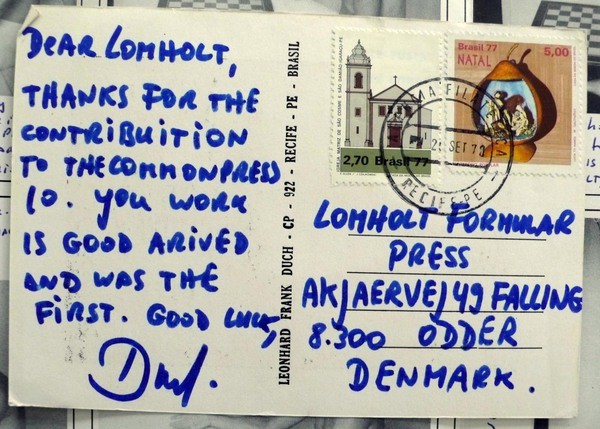 DEAR LOMHOLT,
THANKS FOR THE
CONTRIBUITION
TO THE COMMONPRESS
10. YOU WORK
IS GOOD ARIVED
AND WAS THE
FIRST. GOOD LUCK,
LEONHARD FRANK DUCH - CP - 922 - RECIFE - PE - BRASIL
2,70 Brasil 77
Brasil 77 5,00
NATAL
RECIFE-PE
LOMHOLT FORMULAR
PRESS
AKJAERVEJ 49 FALLING
8.300 ODDER
DENMARK.